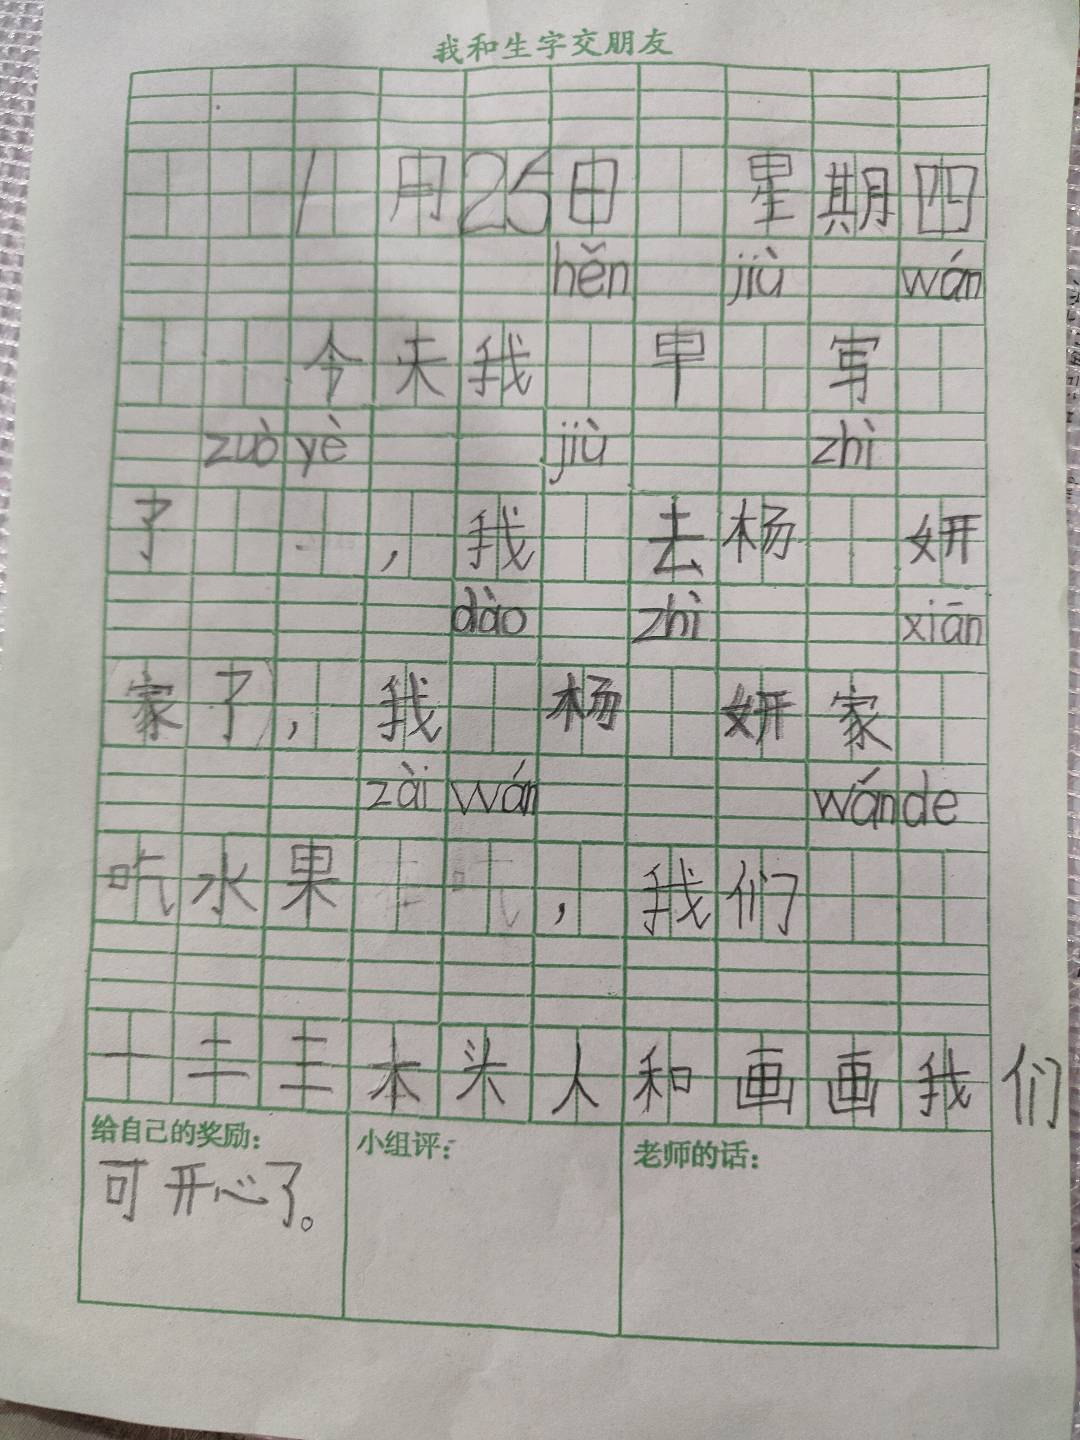 我和生字交朋友
1月25日 星期四
hěn jiù wán
今来我 早 写
zuò yè jiù zhì
了 , 我 去杨 妍
dào zhì xiān
家了, 我 杨 妍家
zài wán wán de
吃水果 , 我们
本头人和画画我们
给自己的奖励: 小组评: 老师的话:
可开心了。